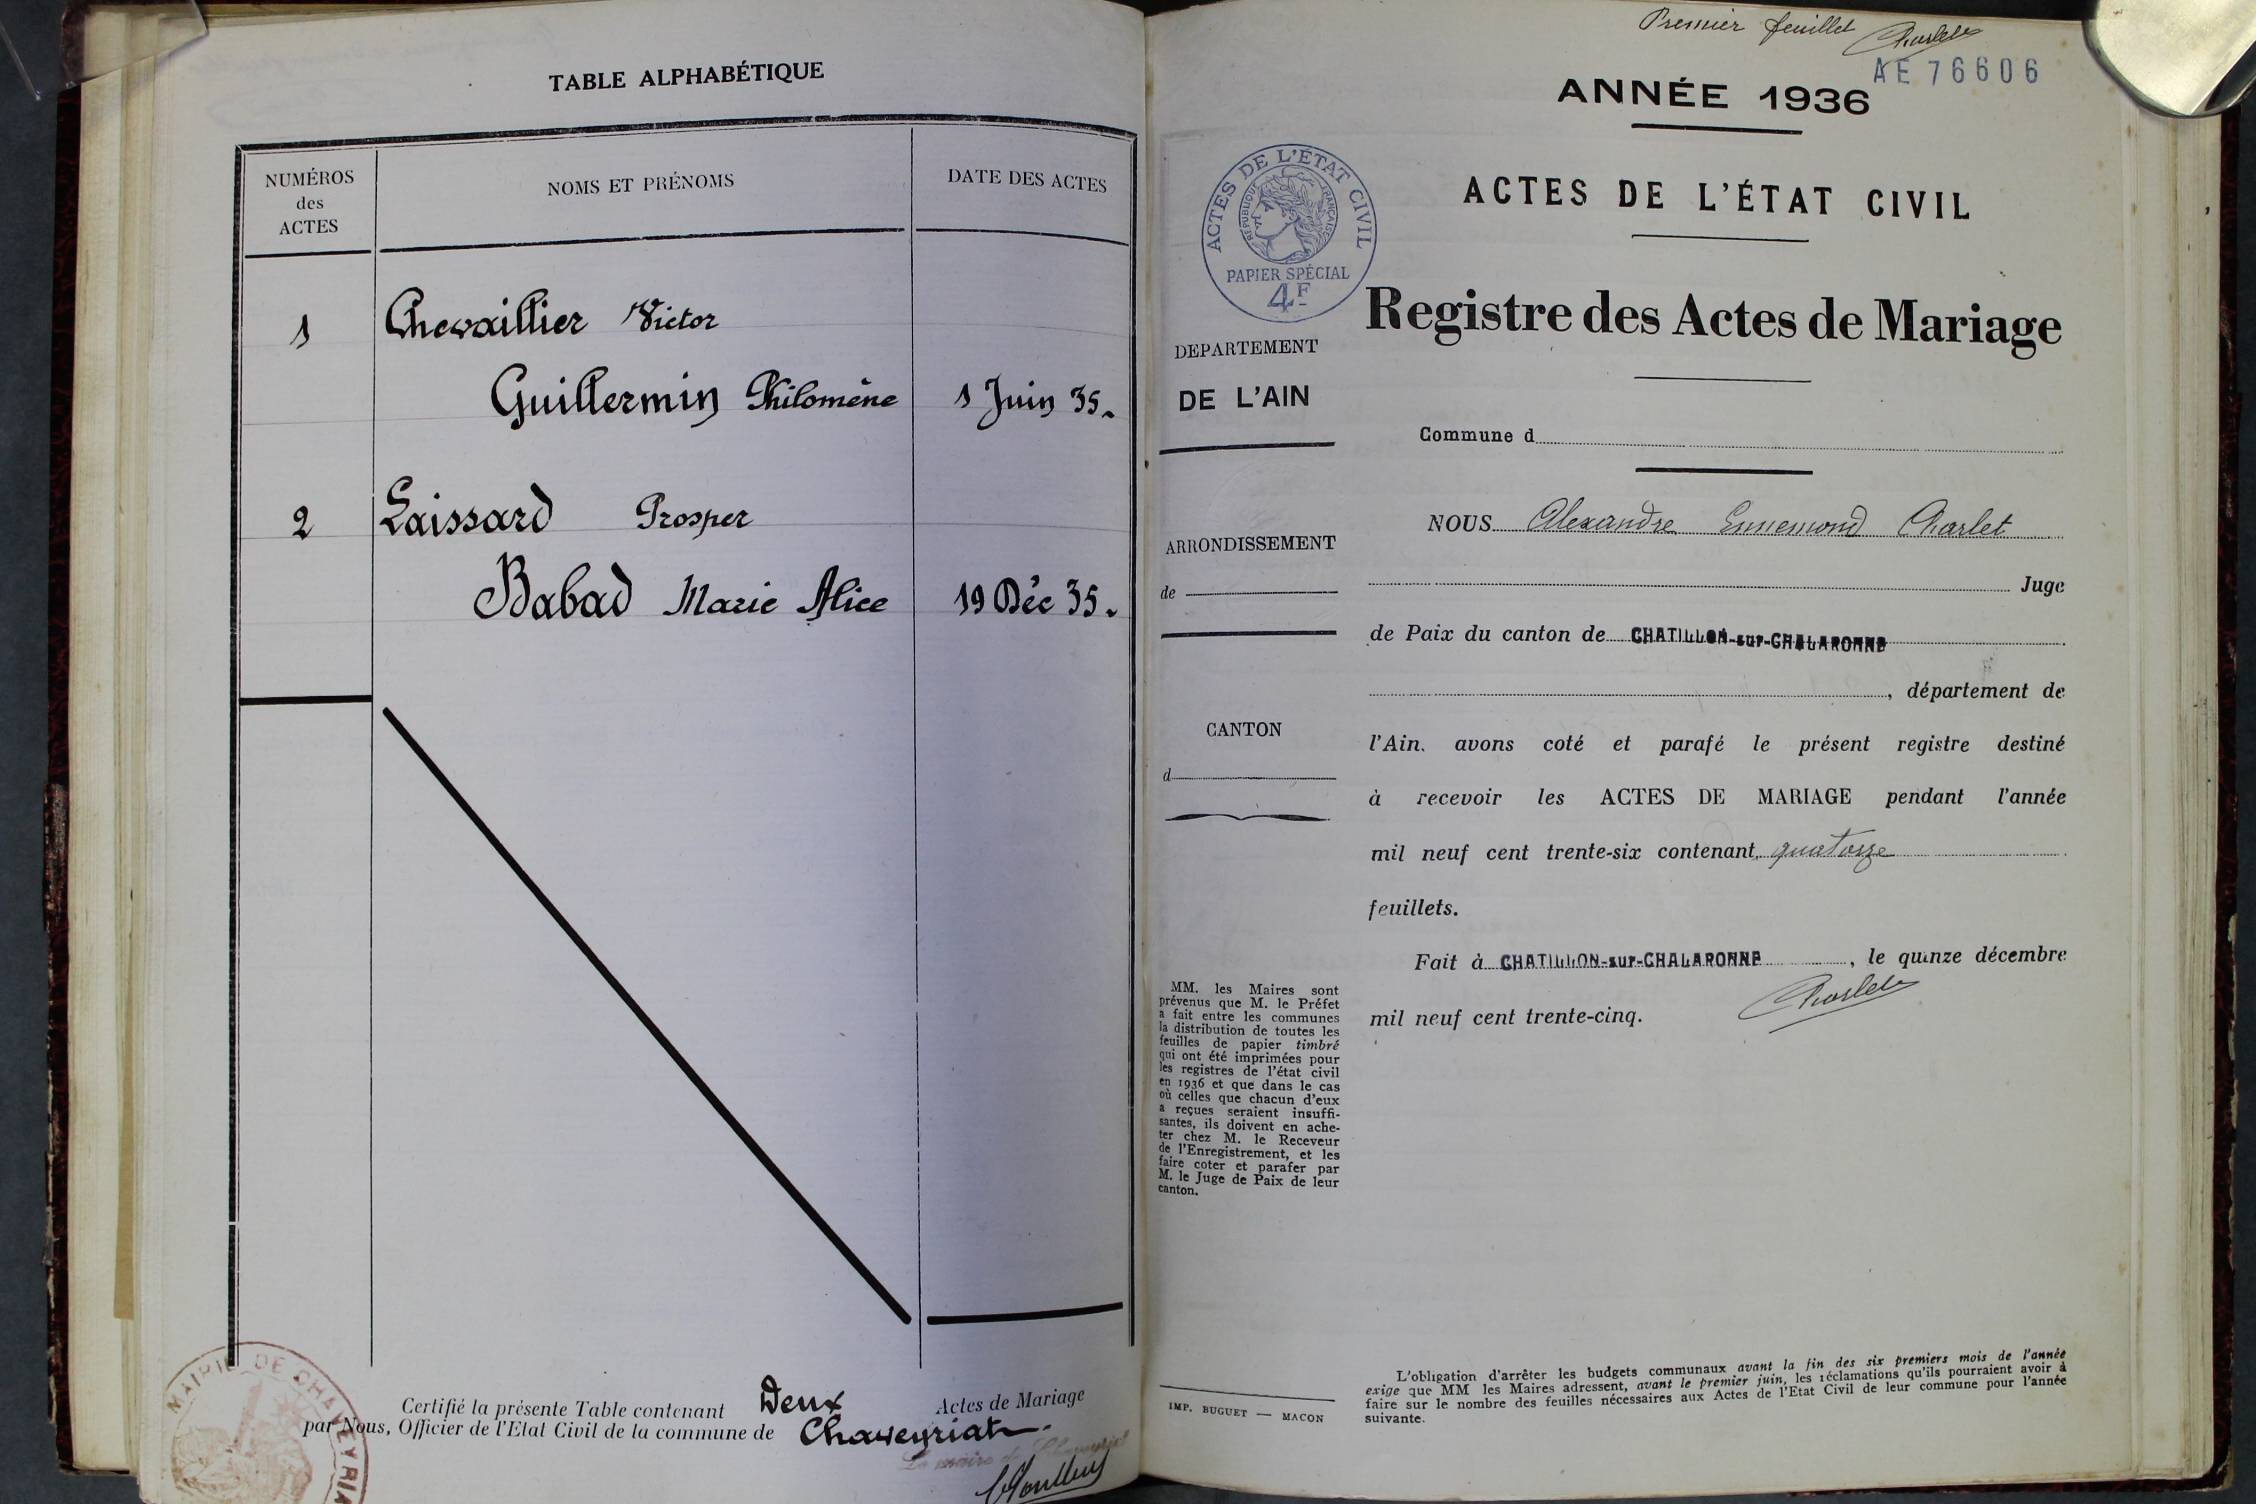 TABLE ALPHABÉTIQUE
NUMÉROS
des
ACTES
NOMS ET PRÉNOMS
DATE DES ACTES
1 Chevaillier Victor
Guillermin Philomène 1 Juin 35.
2 Laissard Prosper
Babad Marie Alice 19 Déc 35.
Certifié la présente Table contenant Deux Actes de Mariage
par Nous, Officier de l'Etat Civil de la commune de Chaveyriat
Le maire de Chaveyriat
MAIRIE DE CHAVEYRIA
Premier feuillet Charlet
AE 76606
ANNÉE 1936
ACTES DE L'ÉTAT CIVIL
ACTES DE L'ÉTAT CIVIL
RÉPUBLIQUE FRANÇAISE
PAPIER SPÉCIAL
4F
Registre des Actes de Mariage
DEPARTEMENT
DE L'AIN
ARRONDISSEMENT
de
CANTON
d
MM. les Maires sont
prévenus que M. le Préfet
a fait entre les communes
la distribution de toutes les
feuilles de papier timbré
qui ont été imprimées pour
les registres de l'état civil
en 1936 et que dans le cas
où celles que chacun d'eux
a reçues seraient insuffi-
santes, ils doivent en ache-
ter chez M. le Receveur
de l'Enregistrement, et les
faire coter et parafer par
M. le Juge de Paix de leur
canton.
IMP. BUGUET — MACON
Commune d
NOUS Alexandre Ennemond Charlet
Juge
de Paix du canton de CHATILLON-sur-CHALARONNE
, département de
l'Ain. avons coté et parafé le présent registre destiné
à recevoir les ACTES DE MARIAGE pendant l'année
mil neuf cent trente-six contenant quatorze
feuillets.
Fait à CHATILLON-sur-CHALARONNE, le quinze décembre
mil neuf cent trente-cinq. Charlet
L'obligation d'arrêter les budgets communaux avant la fin des six premiers mois de l'année
exige que MM les Maires adressent, avant le premier juin, les réclamations qu'ils pourraient avoir à
faire sur le nombre des feuilles nécessaires aux Actes de l'Etat Civil de leur commune pour l'année
suivante.